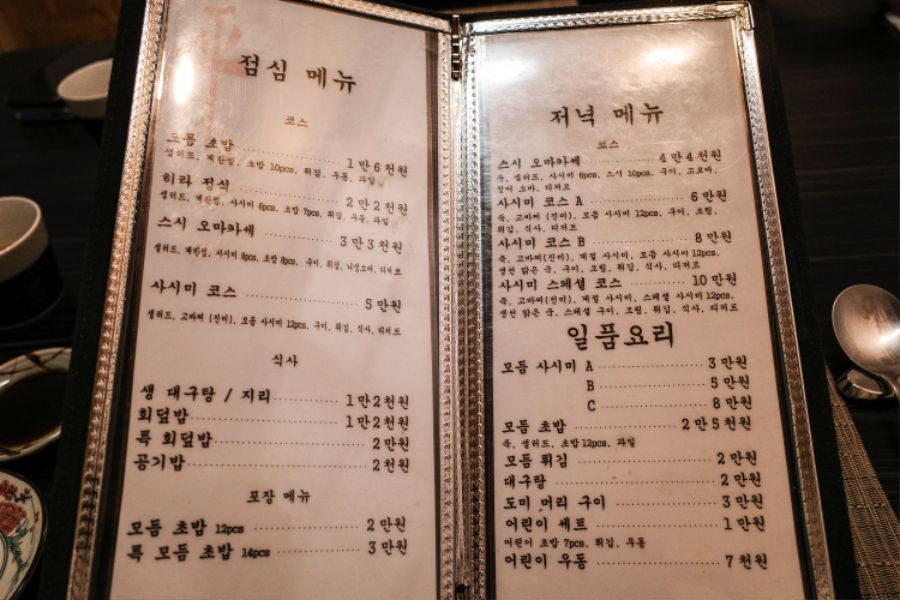 점심 메뉴
코스
모듬 초밥 1만6천원
샐러드, 계란찜, 초밥 10pcs, 튀김, 우동, 과일
히라 정식 2만2천원
샐러드, 계란찜, 사시미 6pcs, 초밥 7pcs, 튀김, 우동, 과일
스시 오마카세 3만3천원
샐러드, 계란찜, 사시미 8pcs, 초밥 8pcs, 구이, 튀김, 디저트
사시미 코스 5만원
샐러드, 고바찌 (진미), 모듬 사시미 12pcs, 구이, 튀김, 식사, 디저트
식사
생 대구탕 / 지리 1만2천원
회덮밥 1만2천원
특 회덮밥 2만원
공기밥 2천원
포장 메뉴
모듬 초밥 12pcs 2만원
특 모듬 초밥 14pcs 3만원
저녁 메뉴
코스
스시 오마카세 4만4천원
죽, 샐러드, 사시미 6pcs, 스시 10pcs, 구이, 고로바,
청어 소바, 디저트
사시미 코스 A 6만원
죽, 고바찌 (진미), 모듬 사시미 12pcs, 구이, 조림,
튀김, 식사, 디저트
사시미 코스 B 8만원
죽, 고바찌(진미), 계절 사시미, 모듬 사시미 12pcs,
생선 맑은 국, 구이, 조림, 튀김, 식사, 디저트
사시미 스페셜 코스 10만원
죽, 고바찌(진미), 계절 사시미, 스페셜 사시미 12pcs,
생선 맑은 국, 스페셜 구이, 조림, 튀김, 식사, 디저트
일품요리
모듬 사시미 A 3만원
B 5만원
C 8만원
모듬 초밥 2만5천원
죽, 샐러드, 초밥 12pcs, 과일
모듬 튀김 2만원
대구탕 2만원
도미 머리 구이 3만원
어린이 세트 1만원
어린이 초밥 7pcs, 튀김, 우동
어린이 우동 7천원